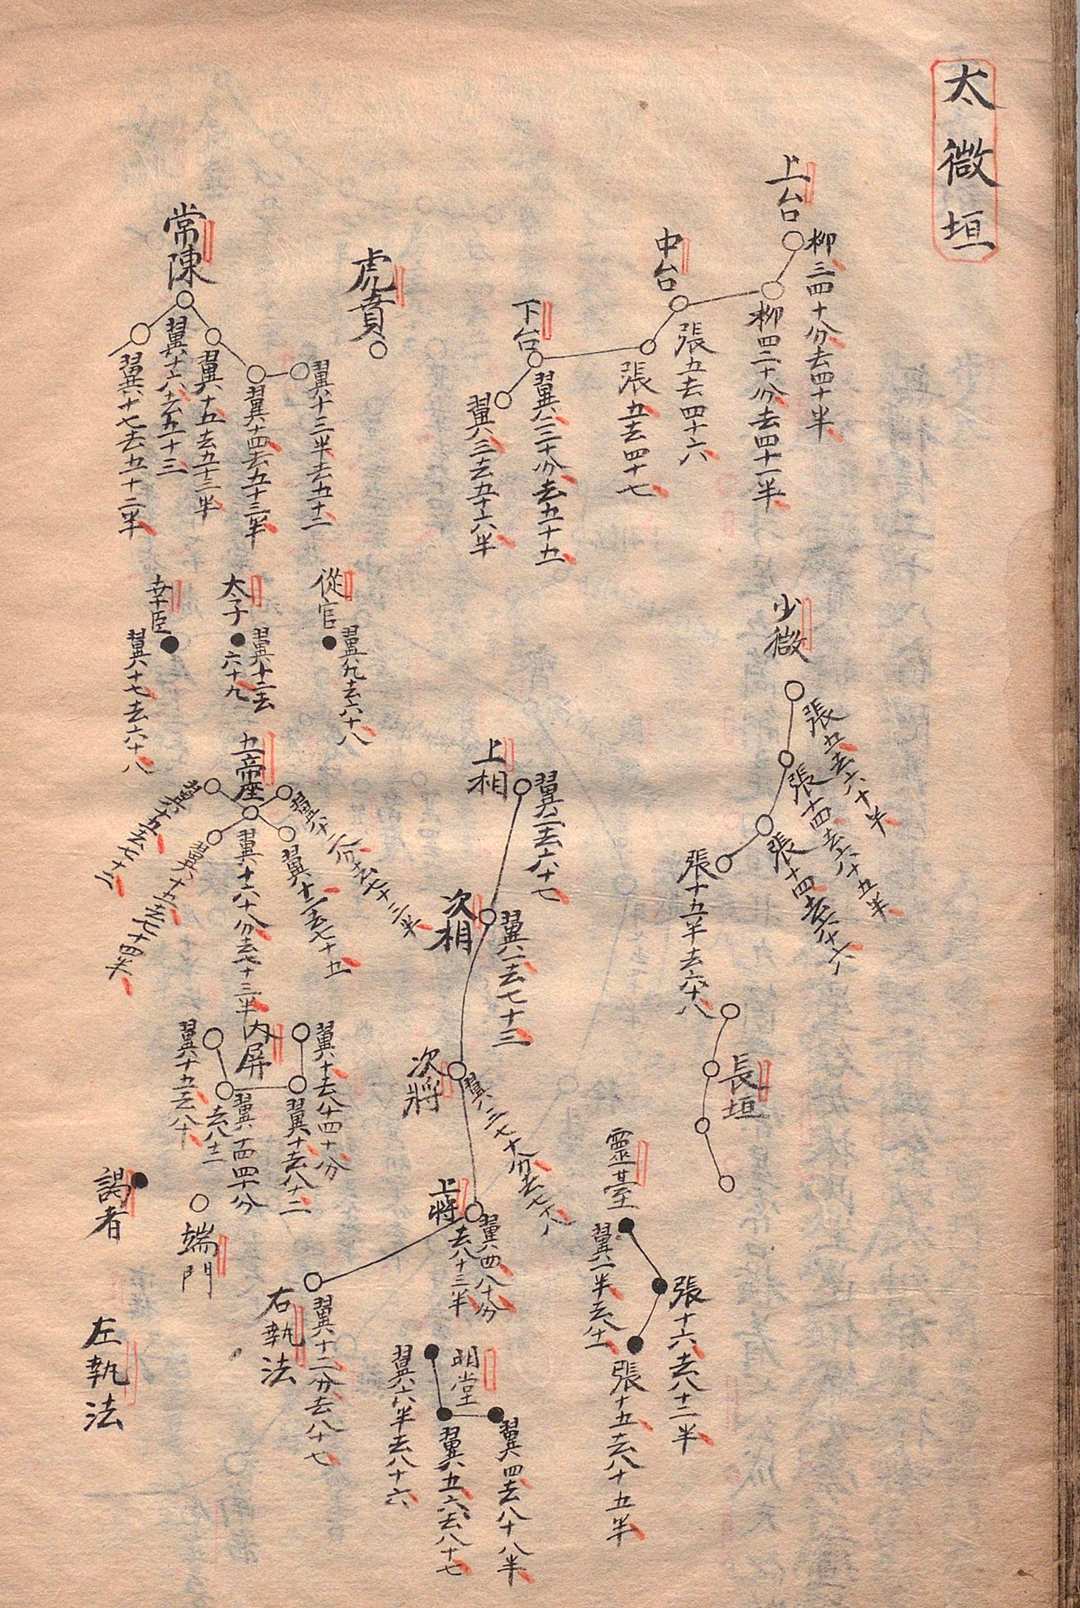 太微垣
上台
柳三四十分去四十半
柳四二十分去四十一半
中台
張五去四十六
張五去四十七
下台
翼二三十分去五十五
翼三去五十六半
虎賁
常陳
翼十三半去五十二
翼十四去五十三半
翼十五去五十三半
翼十六去五十三
翼十七去五十二半
少微
張五去六十半
張十四去六十五半
張十四去六十六
張十五半去六十八
長垣
靈臺
翼一半去八十
張十六去八十二半
張十五去八十五半
上相
翼二去六十七
次相
翼一去七十三
次將
翼二七十分去七十八
上將
翼四八十分
去八十三半
右執法
翼十二分去八十七
明堂
翼四去八十八半
翼五六去八十七
翼六半去八十六
從官
翼九去六十八
太子
翼十二去
六十九
幸臣
翼十七去六十八
五帝座
翼十六十分去七十三半
翼十一去七十五
翼十五去七十二
翼十五去七十四半
內屏
翼十去八十四十分
翼十去八十二
翼十四四十分
去八十二
翼十五去八十
謁者
端門
左執法